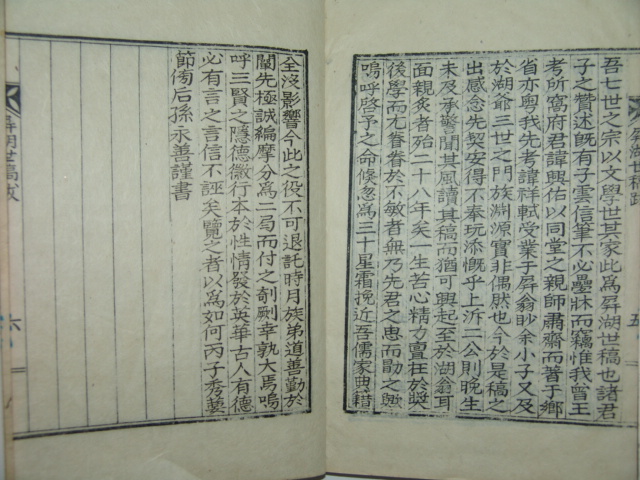 屛湖世稿跋
五
吾七世之宗以文學世其家此爲屛湖世稿也諸君
子之贊述旣有子雲信筆不必疊牀而竊惟我曾王
考所窩府君諱興佑以同堂之親師肅齋而著于鄉
省亦粤我先考諱祥軾受業于屛翁眇余小子又及
於湖爺三世之門族淵源實非偶然也今於是稿之
出感念先契安得不奉玩添慨乎上泝二公則晚生
未及承警聞其風讀其稿而猶可興起至於湖翁耳
面親炙者殆二十八年矣一生苦心精力亶在於奬
後學而尤眷眷於不敏者無乃先君之惠而勖之與
嗚呼啓予之命倏忽爲三十星霜挽近吾儒家典籍
全沒影響今此之役不可退託時月族弟道善勤於
闡先極誠編摩分爲二局而付之剞劂幸孰大焉嗚
呼三賢之隱德徽行本於性情發於英華古人有德
必有言之言信不誣矣覽之者以爲如何丙子秀葽
節傍后孫永善謹書
屛湖世稿跋
六